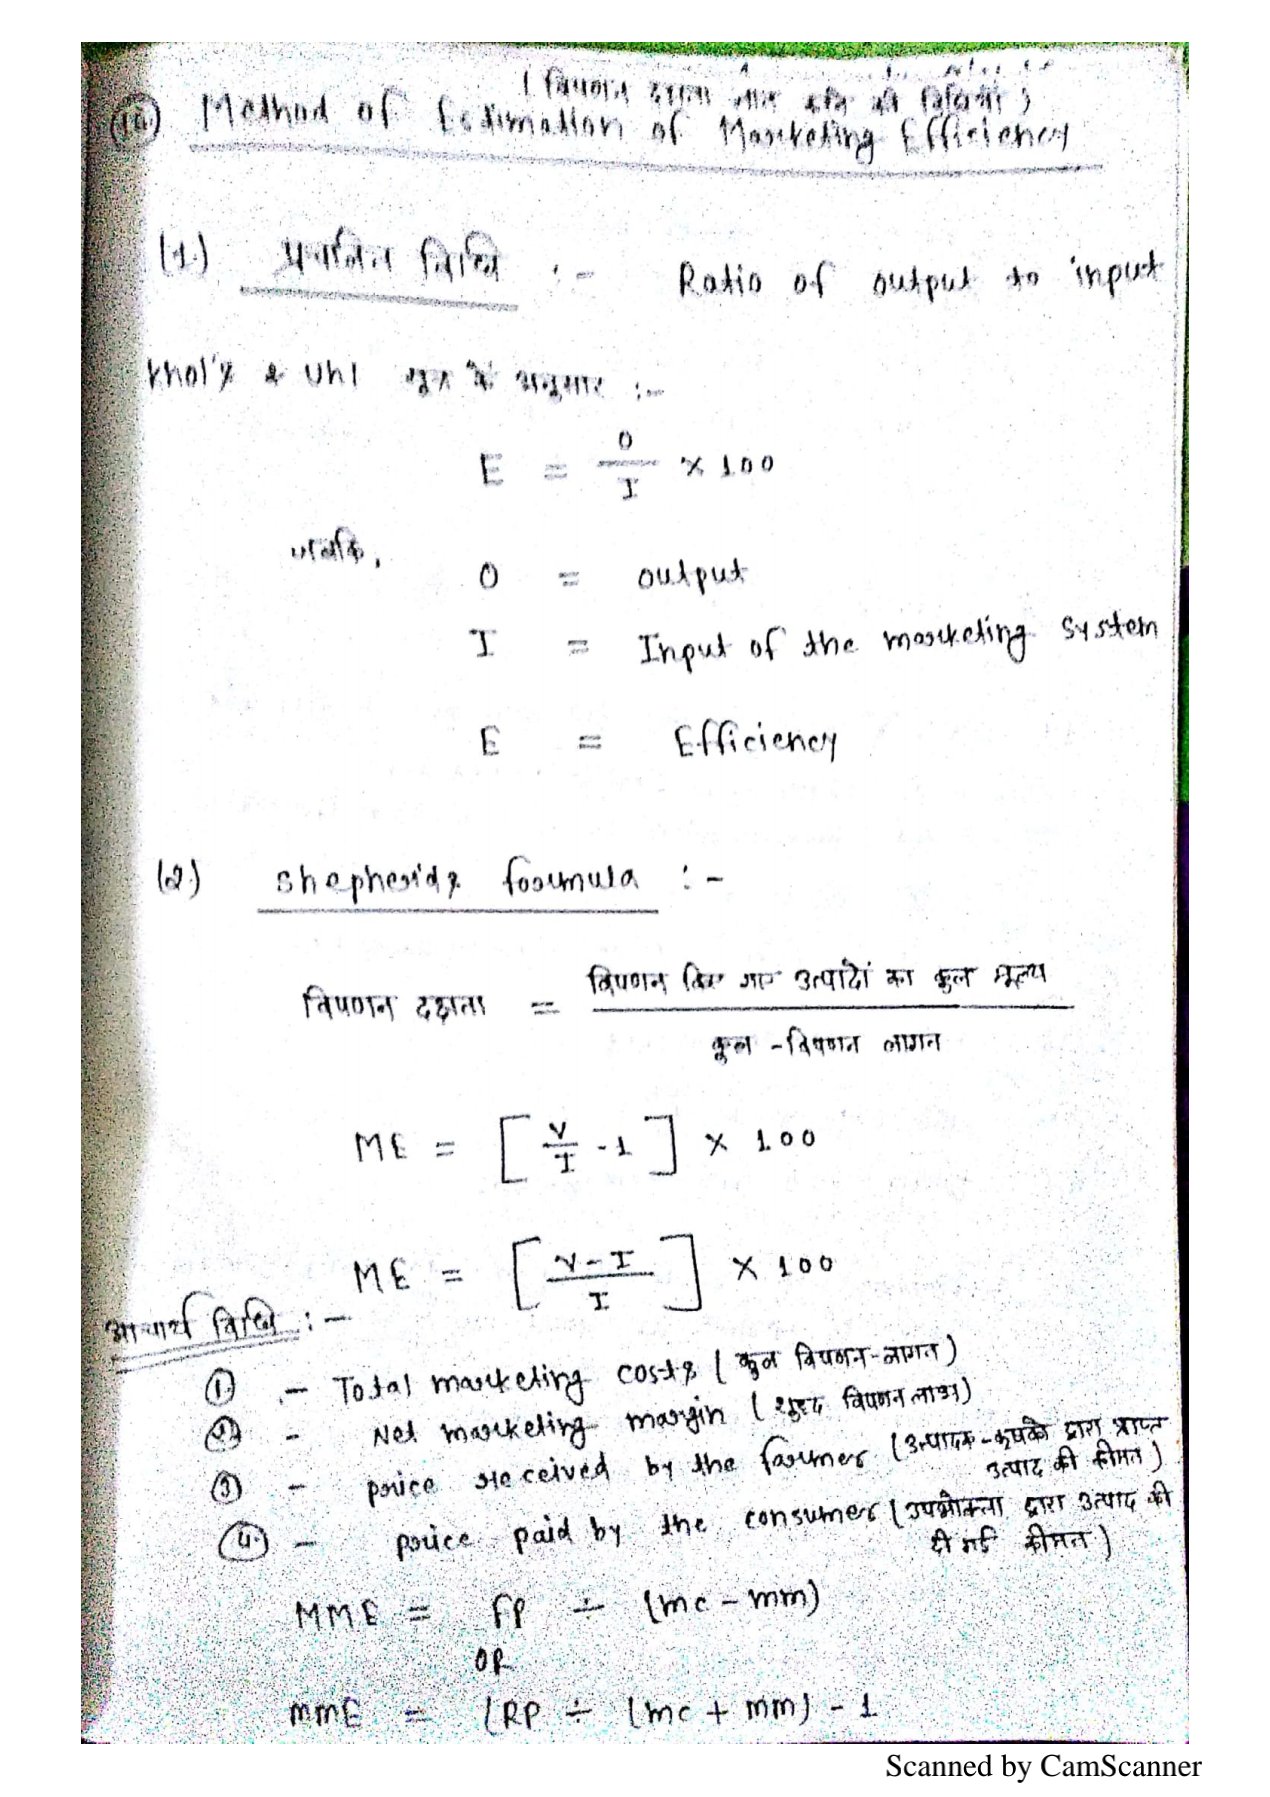 (विपणन दक्षता ज्ञात करने की विधियां)
Method of Estimation of Marketing Efficiency
(1.) प्रचलित विधि :- Ratio of output to input
Khol's & Uhl सूत्र के अनुसार :-
E = O/I × 100
जबकि,
O = output
I = Input of the marketing system
E = Efficiency
(2.) shepherds formula :-
विपणन दक्षता = विपणन किए गए उत्पादों का कुल मूल्य / कुल - विपणन लागत
ME = [V/I - 1] × 100
ME = [V - I / I] × 100
आचार्य विधि :-
(1.) - Total marketing costs (कुल विपणन - लागत)
(2.) - Net marketing margin (शुद्ध विपणन लाभ)
(3) - price received by the farmer (उत्पादक - कृषको द्वारा प्राप्त
उत्पाद की कीमत)
(4.) - price paid by the consumer (उपभोक्ता द्वारा उत्पाद की
दी गई कीमत)
MME = FP ÷ (mc - mm)
OR
mmE = (RP ÷ (mc + mm) - 1
Scanned by CamScanner